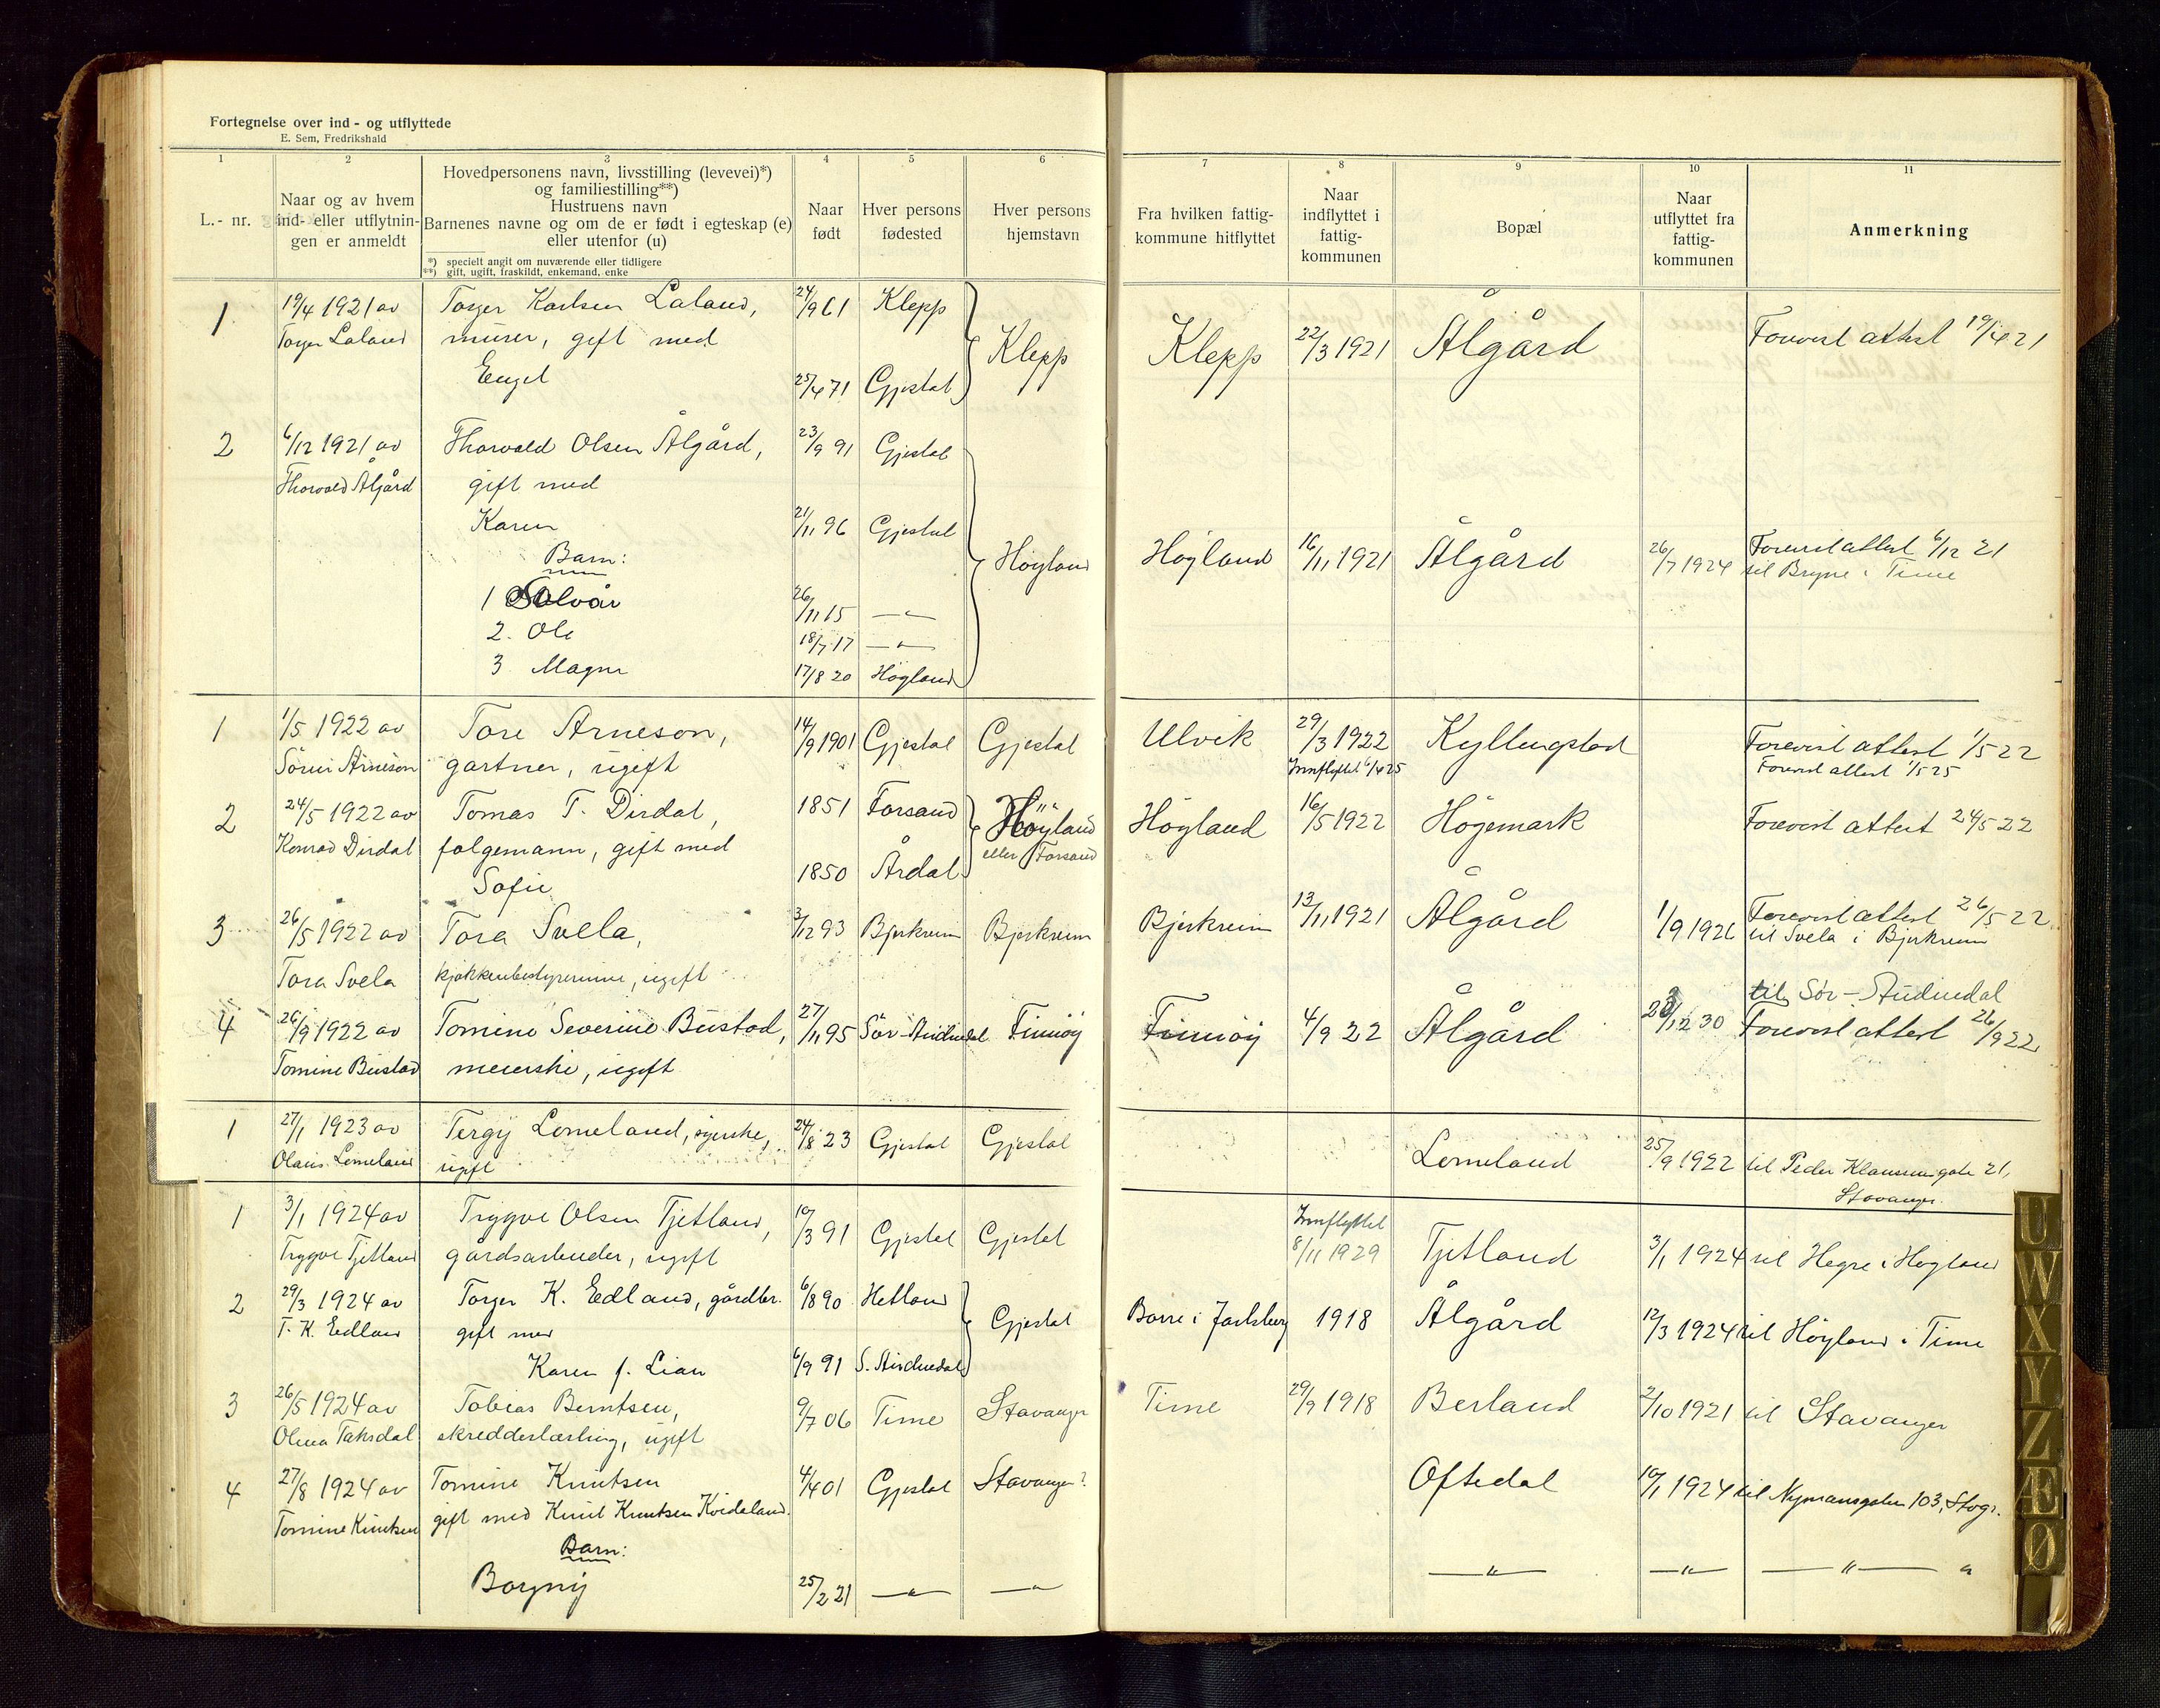 Fortegnelse over ind - og utflyttede
E. Sem, Fredrikshald
1 2 3 4 5 6 7 8 9 10 11
L.- nr.
Naar og av hvem ind- eller utflytningen er anmeldt
Hovedpersonens navn, livsstilling (levevei)*)
og familiestilling**)
Hustruens navn
Barnenes navne og om de er født i egteskap (e)
eller utenfor (u)
*) specielt angit om nuværende eller tidligere
**) gift, ugift, fraskildt, enkemand, enke
Naar født
Hver persons fødested
Hver persons hjemstavn
Fra hvilken fattigkommune hitflyttet
Naar indflyttet i fattigkommunen
Bopæl
Naar utflyttet fra fattigkommunen
Anmerkning
1 19/4 1921 av Torger Karlsen Laland, 24/9 61 Klepp Klepp Klepp 22/3 1921 Ålgård Forevist attest 19/4 21
Torger Laland murer, gift med
Engel 25/4 71 Gjestal
2 6/12 1921 av Thorvald Olsen Ålgård, 23/9 91 Gjestal
Thorvald Ålgård gift med
Karen 21/11 96 Gjestal
Barn: Høyland Høyland 16/11 1921 Ålgård 26/7 1924 Forevist attest 6/12 21
til Bryne i Time
1 Solvår 26/11 15 — " —
2. Ole 18/7 17 — " —
3 Magne 17/8 20 Høyland
1 1/5 1922 av Tore Arneson, 14/9 1901 Gjestal Gjestal Ulvik 29/3 1922 Kyllingstad Forevist attest 1/5 22
Sørin Arneson gartner, ugift Innflyttet 6/4 25 Forevist attest 1/5 25
2 24/5 1922 av Tomas T. Dirdal, 1851 Forsand Høyland Høyland 16/5 1922 Høgemark Forevist attest 24/5 22
Konrad Dirdal følgemann, gift med eller Forsand
Sofie 1850 Årdal
3 26/5 1922 av Tora Svela, 3/12 93 Bjerkreim Bjerkreim Bjerkreim 13/11 1921 Ålgård 1/9 1926 Forevist attest 26/5 22
til Svela i Bjerkreim
Tora Svela kjøkkenbestyrerinne, ugift
til Sør-Audnedal
4 26/9 1922 av Tomine Severine Bustad, 27/11 95 Sør-Audnedal Finnøy Finnøy 4/9 22 Ålgård /12 30 Forevist attest 26/9 22
Tomine Bustad meierske, ugift
1 27/1 1923 av Tergy Lomeland, syerske, 24/8 23 Gjestal Gjestal Lomeland 25/9 1922 til Peder Klausensgate 21,
Olaus Lomeland ugift Stavanger.
1 3/1 1924 av Trygve Olsen Tjetland, 10/3 91 Gjestal Gjestal Innflyttet 8/11 1929 Tjetland 3/1 1924 til Hegre i Høyland
Trygve Tjetland gårdsarbeider, ugift
2 29/3 1924 av Torger K. Edland, gårdbr. 6/8 90 Hetland Gjestal Borre i Jarlsberg 1918 Ålgård 12/3 1924 til Høyland i Time
T. K. Edland gift med
Karen f. Lian 6/9 91 S. Audnedal
3 26/5 1924 av Tobias Berntsen, 9/7 06 Time Stavanger Time 29/9 1918 Berland 2/10 1921 til Stavanger
Olena Taksdal skredderlærling, ugift
4 27/8 1924 av Tomine Knutsen 4/4 01 Gjestal Stavanger? Oftedal 10/1 1924 til Nymansgaten 103, Stvgr.
Tomine Knutsen gift med Knut Knutsen Kvideland.
Barn:
Borgny 25/2 21 — " — — " — — " — — " — — " — "
U
W
X
Y
Z
Æ
Ø